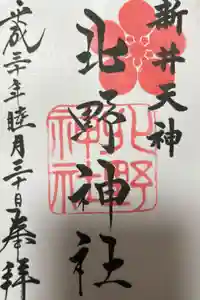 新井天神
北野神社
北野
神社
平成三十年睦月三十日奉拝